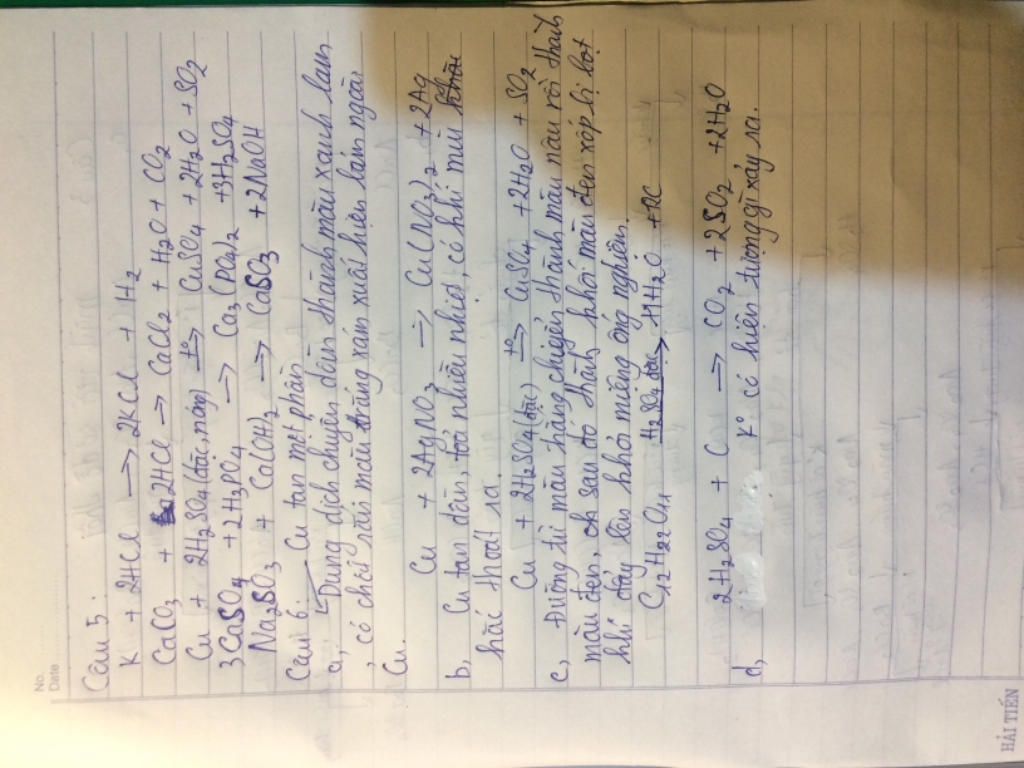 No.
Date
Câu 5:
K + 2HCl → 2KCl + H2
CaCO3 + 2HCl → CaCl2 + H2O + CO2
Cu + 2H2SO4 (đặc, nóng) t°→ CuSO4 + 2H2O + SO2
3CaSO4 + 2H3PO4 → Ca3(PO4)2 + 3H2SO4
Na2SO3 + Ca(OH)2 → CaSO3 + 2NaOH
Câu 6: Cu tan một phần
a, Dung dịch chuyển dần thành màu xanh lam
, có chất rắn màu trắng xám xuất hiện bám ngoài
Cu.
Cu + 2AgNO3 → Cu(NO3)2 + 2Ag
b, Cu tan dần, toả nhiều nhiệt, có khí mùi
hắc thoát ra.
Cu + 2H2SO4 (đặc) t°→ CuSO4 + 2H2O + SO2
c, Đường từ màu trắng chuyển thành màu nâu rồi thành
màu đen, sau đó thành khối màu đen xốp bị bọt
khí đẩy lên khỏi miệng ống nghiệm.
C12H22O11 H2SO4 đặc→ 11H2O + 12C
2H2SO4 + C → CO2 + 2SO2 + 2H2O
d, K° có hiện tượng gì xảy ra.
HẢI TIẾN